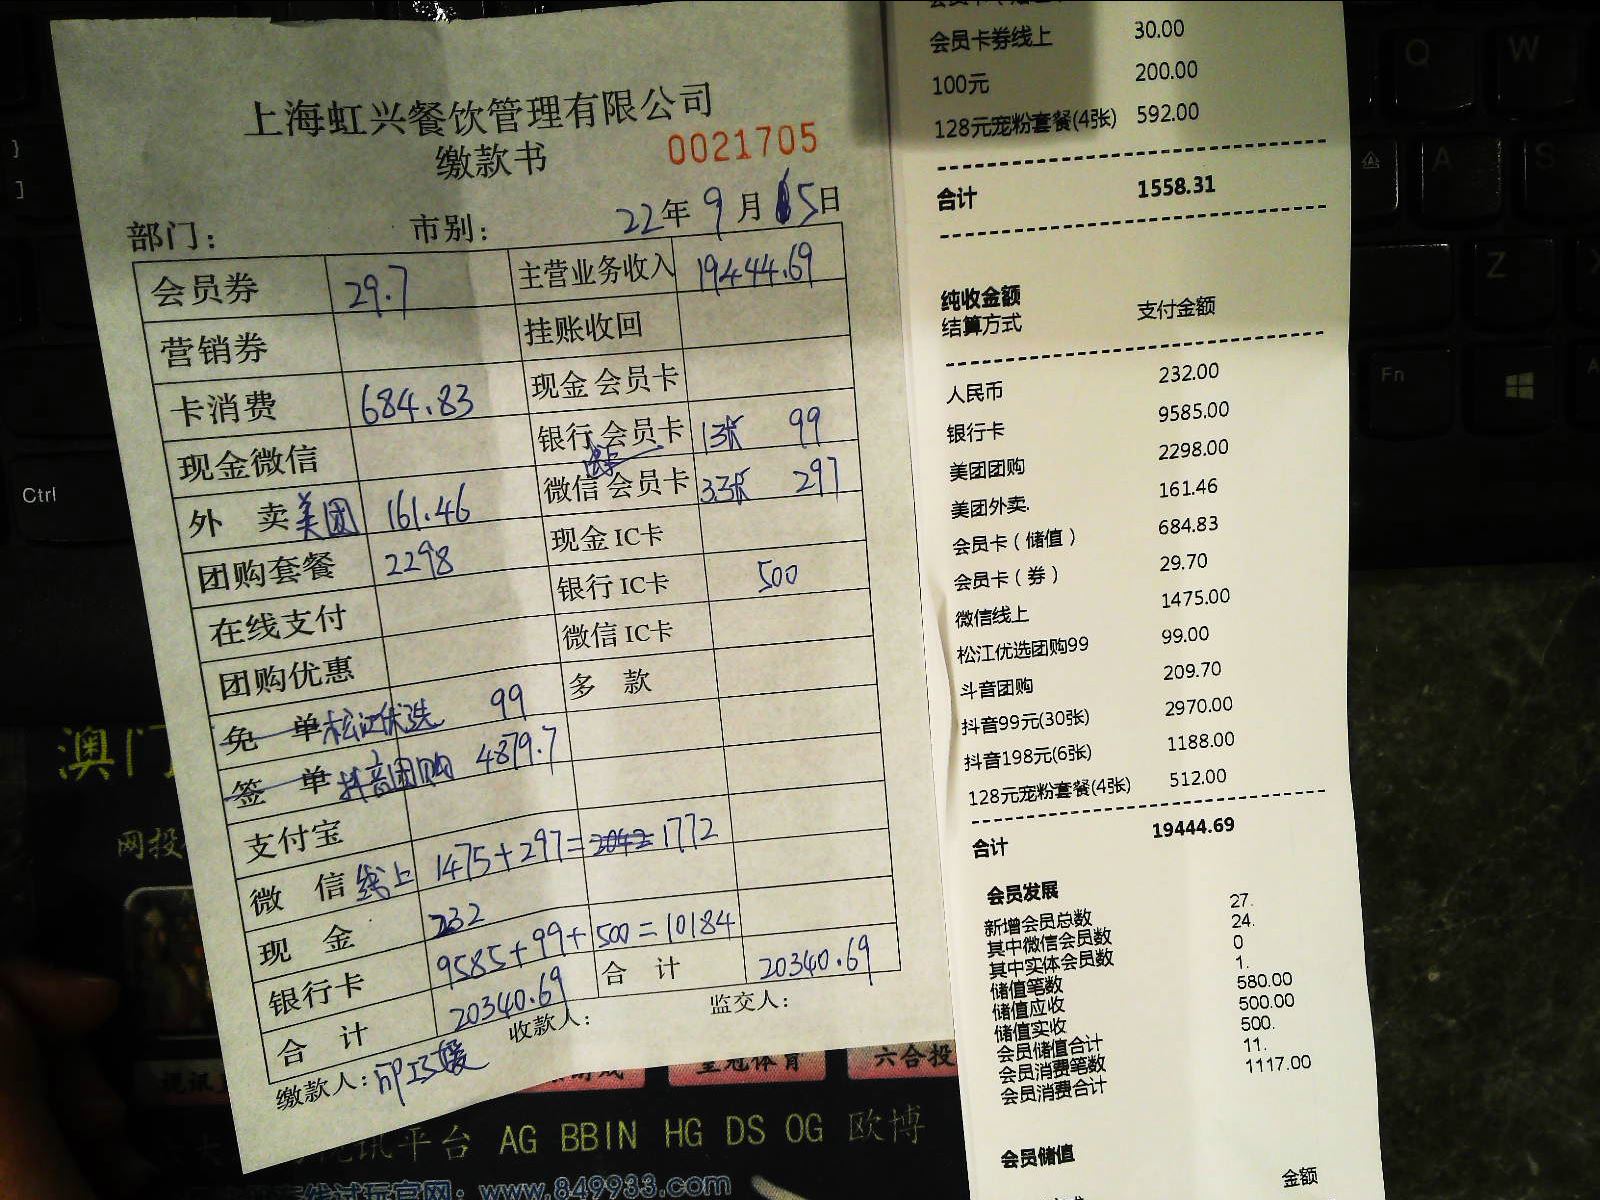 上海虹兴餐饮管理有限公司
缴款书 0021705
部门： 市别： 22年 9月 15日
会员券 29.7 主营业务收入 19444.69
营销券 挂账收回
卡消费 684.83 现金 会员卡
现金微信 银行 会员卡 1张 99
外 卖 美团 161.46 微信 会员卡 3张 297
团购套餐 2298 现金 IC卡
在线支付 银行 IC卡 500
团购优惠 微信 IC卡
免 单 松江优选 99 多 款
签 单 抖音团购 4879.7
支付宝
微 信 线上 1475+297=2042 1772
现 金 232
银行卡 9585+99+500=10184
合 计 20340.69 合 计 20340.69
缴款人： 收款人： 监交人：
会员卡券线上 30.00
100元 200.00
128元宠粉套餐(4张) 592.00
合计 1558.31
纯收金额
结算方式 支付金额
人民币 232.00
银行卡 9585.00
美团团购 2298.00
美团外卖. 161.46
会员卡（储值） 684.83
会员卡（券） 29.70
微信线上 1475.00
松江优选团购99 99.00
斗音团购 209.70
抖音99元(30张) 2970.00
抖音198元(6张) 1188.00
128元宠粉套餐(4张) 512.00
合计 19444.69
会员发展
新增会员总数 27.
其中微信会员数 24.
其中实体会员数 0
储值笔数 1.
储值应收 580.00
储值实收 500.00
会员储值合计 500.
会员消费笔数 11.
会员消费合计 1117.00
会员储值
金额
Ctrl
Q
W
A
S
Z
Fn
澳门
网投
皇冠体育
六合投
讯平台 AG BBIN HG DS OG 欧博
线试玩官网：www.849933.com